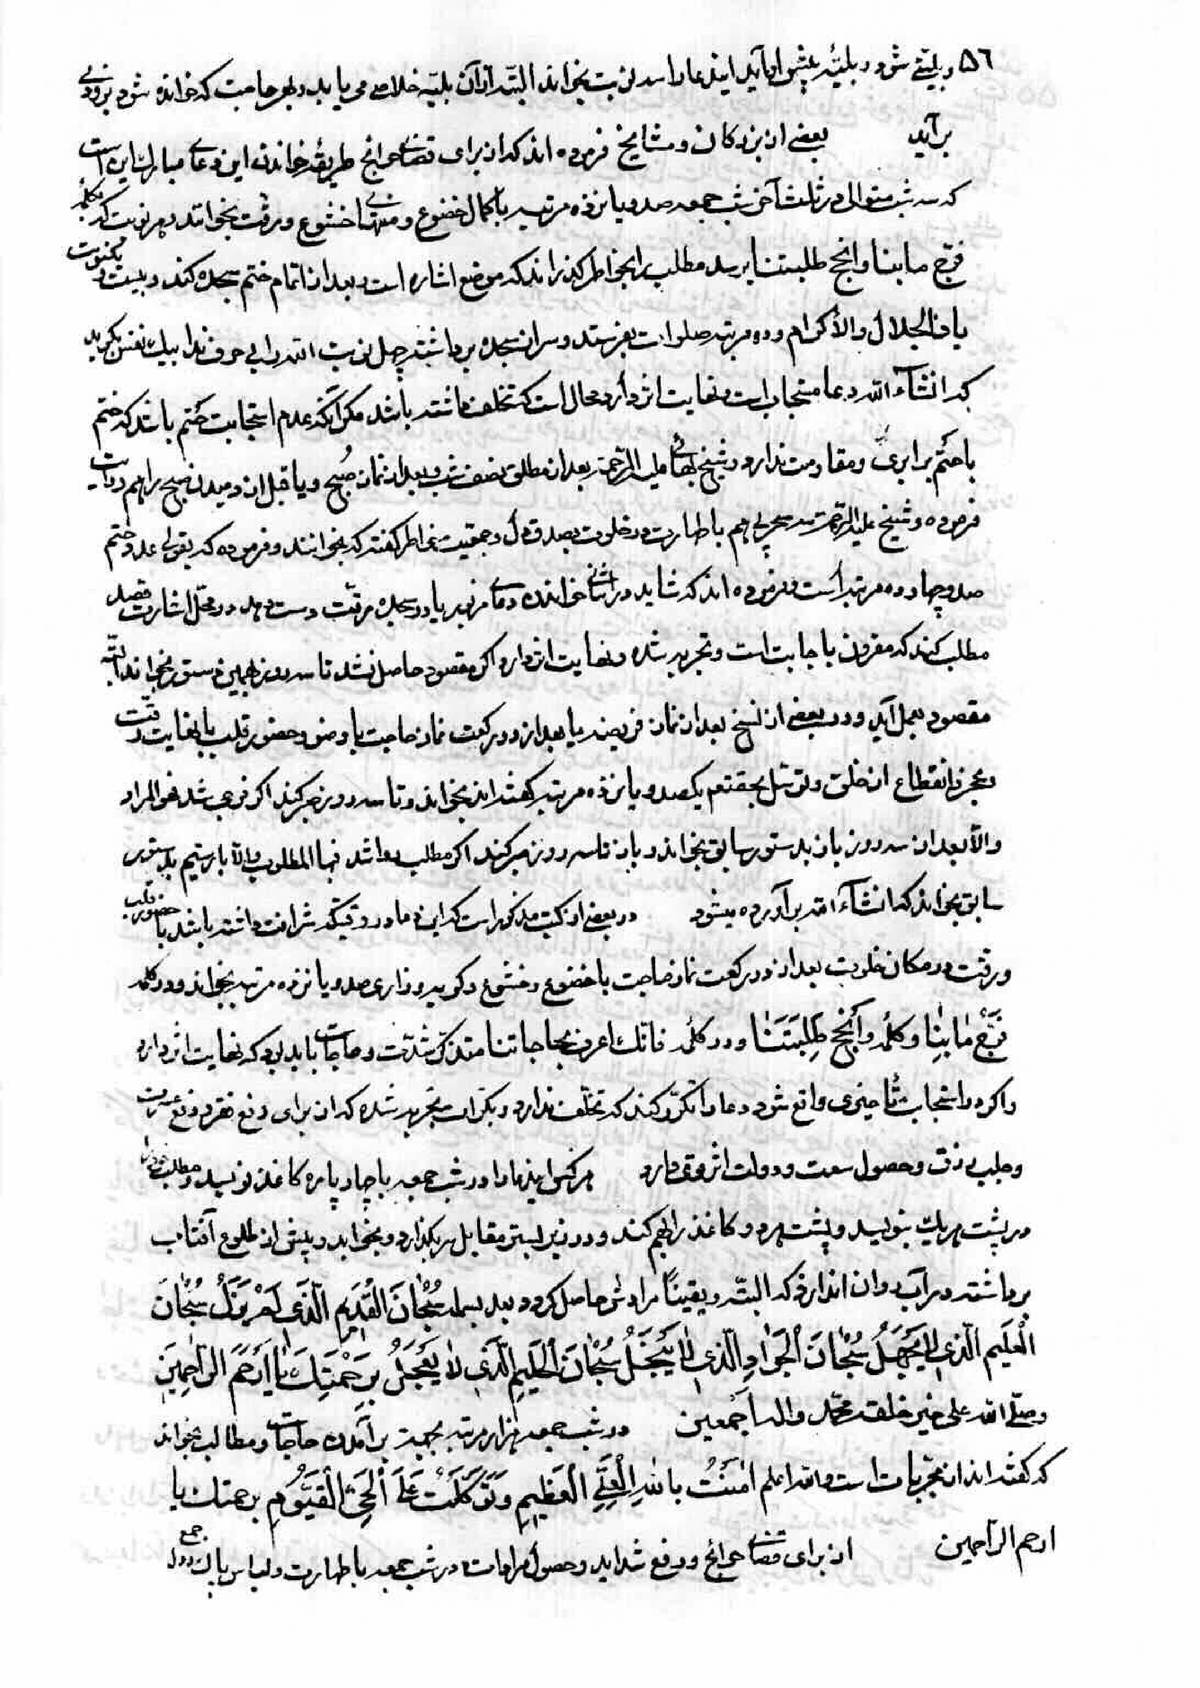 ٥٦ و بلیتی شود و بلیّهٔ پیش او آید این دعا را سه نوبت بخواند البته از آن بلیّه خلاصی می یابد و بهر حاجت که خوانده شود بزودی
برآید بعضی از بزرکان و مشایخ فرموده اند که از برای قضای حوائج طریقهٔ خواندن این دعای مبارک این است
که سه شب متوالی در ثلث آخر شب جمعه صد و پانزده مرتبه با کمال خضوع و منتهای خشوع و رقت بخواند و هر نوبت که بکلمهٔ
فرّج ما بنا و انجح طلبتنا برسد مطلب را بخاطر کذراند که موضع اشاره است و بعد از اتمام ختم سجده کند و بیست و یکنوبت
یا ذا الجلال والاکرام و ده مرتبه صلوات بفرستد و سر از سجده برداشته چهل نوبت الله را بی حرف ندا بیک نفس بکوید
که انشاء الله دعا مستجاب است و نهایت اثر دارد و محال است که تخلف داشته باشد مکر آنکه عدم استجابت ختم باشد که ختم
با ختم برابری و مقاومت ندارد و شیخ بهائی علیه الرحمه بعد از مطلق نصف شب و بعد از نماز صبح و یا قبل از دمیدن صبح را هم روایت
فرموده و شیخ علیه الرحمه سه سحر پی هم با طهارت در خلوت بصدق دل و جمعیت خاطر کفته که بخوانند و فرموده که بقولی عدد ختم
صد و چهارده مرتبه است و فرموده اند که شاید در اثنای خواندن دعای مزبور یا در سجده مرقت دست دهد در محل اشارت قصد
مطلب کنند که مقرون باجابت است و تجربه شده و نهایت اثر دارد اکر مقصود حاصل نشد تا سه روز بهمین دستور بخواند البته
مقصود بعمل آید و در بعضی از نسخ بعد از نماز فریضه یا بعد از دو رکعت نماز حاجت با وضو و حضور قلب با نهایت رقت
و عجز و انقطاع از خلق و توسل بحقتعم یکصد و پانزده مرتبه کفته اند بخواند و تا سه روز صبر کند اکر فرجی شد فهو المراد
والا بعد از سه روز باز بدستور سابق بخواند و باز تا سه روز صبر کند اکر مطلب روا شد فبها المطلوب والا بار سیم بدستور
سابق بخواند که انشاء الله برآورده میشود در بعضی از کتب مذکور است که این دعا در وقتیکه شرافت داشته باشد با حضور قلب
و رقت در مکان خلوت بعد از دو رکعت نماز حاجت با خضوع و خشوع و کریه و زاری صد و پانزده مرتبه بخواند و در کلمه
فَرِّجْ مٰا بِنٰا و کلمه وَ أَنْجِحْ طَلِبَتَنٰا و در کلمه فانک اعرف بحاجاتنا متذکر شدت و حاجات باید بود که نهایت اثر دارد
و اکر در استجابت تأخیری واقع شود دعا را تکرّر کنند که تخلف ندارد و بکرات تجربه شده که از برای دفع فقر و رفع عسرت
و جلب رزق و حصول سعت و دولت اثر قوی دارد هر کس این دعا را در شب جمعه با چهار پاره کاغذ نویسد و مطلب خود را
در پشت هر یک بنویسد و پشت هر دو کاغذ را بهم کند و در زیر بستر مقابل سر بکذارد و بخوابد و پیش از طلوع آفتاب
برداشته در آب روان اندازد که البته و یقیناً مرادش حاصل کردد بعد بسمله سُبْحٰانَ الْقَدِیمِ الَّذِی لَمْ یَزَلْ سُبْحٰانَ
الْعَلِیمِ الَّذِی لاٰ یَجْهَلُ سُبْحٰانَ الْجَوٰادِ الَّذِی لاٰ یَبْخَلُ سُبْحٰانَ الْحَلِیمِ الَّذِی لاٰ یَعْجَلُ بِرَحْمَتِکَ یٰا أَرْحَمَ الرّٰاحِمِینَ
وصلی الله علی خیر خلقه محمّد وآله اجمعین در شب جمعه هزار مرتبه بجهة برآمدن حاجات و مطالب بخواند
که کفته اند از مجرّبات است والله اعلم اٰمَنْتُ بِاللّٰهِ الْعَلِیِّ الْعَظِیمِ وَ تَوَکَّلْتُ عَلَی الْحَیِّ الْقَیُّومِ برحمتک یا
ارحم الراحمین از برای قضای حوائج و رفع شداید و حصول مرادات در شب جمعه با طهارت و لباس پاک